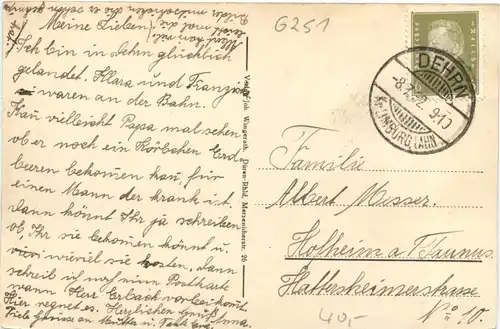 Meine Lieben!
Ich bin in Dehrn glücklich
gelandet. Klara und Franziska
waren an der Bahn.
Kan vielleicht Papa mal sehen
ob er noch ein Körbchen Erd
beeren bekomen kan, für
einen Mann der krank ist,
dann könnt Ihr ja schreiben
ob Ihr sie bekomen könnt u.
wieviel sie kosten, dann
schreib ich auf eine Postkarte
wann Herr Erbach vorbei komt.
Hier regnet es. Herzlichen Gruß, Anna.
Viele Grüsse an Mutter u. Tante
Verlag Joh. Wingerath, Düren-Rhld. Merzenicherstr. 26
G251
DEHRN
-8.7.32. 9-10
LIMBURG (LAHN)
Familie
Albert Messer.
Hofheim a/Taunus.
Hattersheimerstrasse
No 10.
40,-